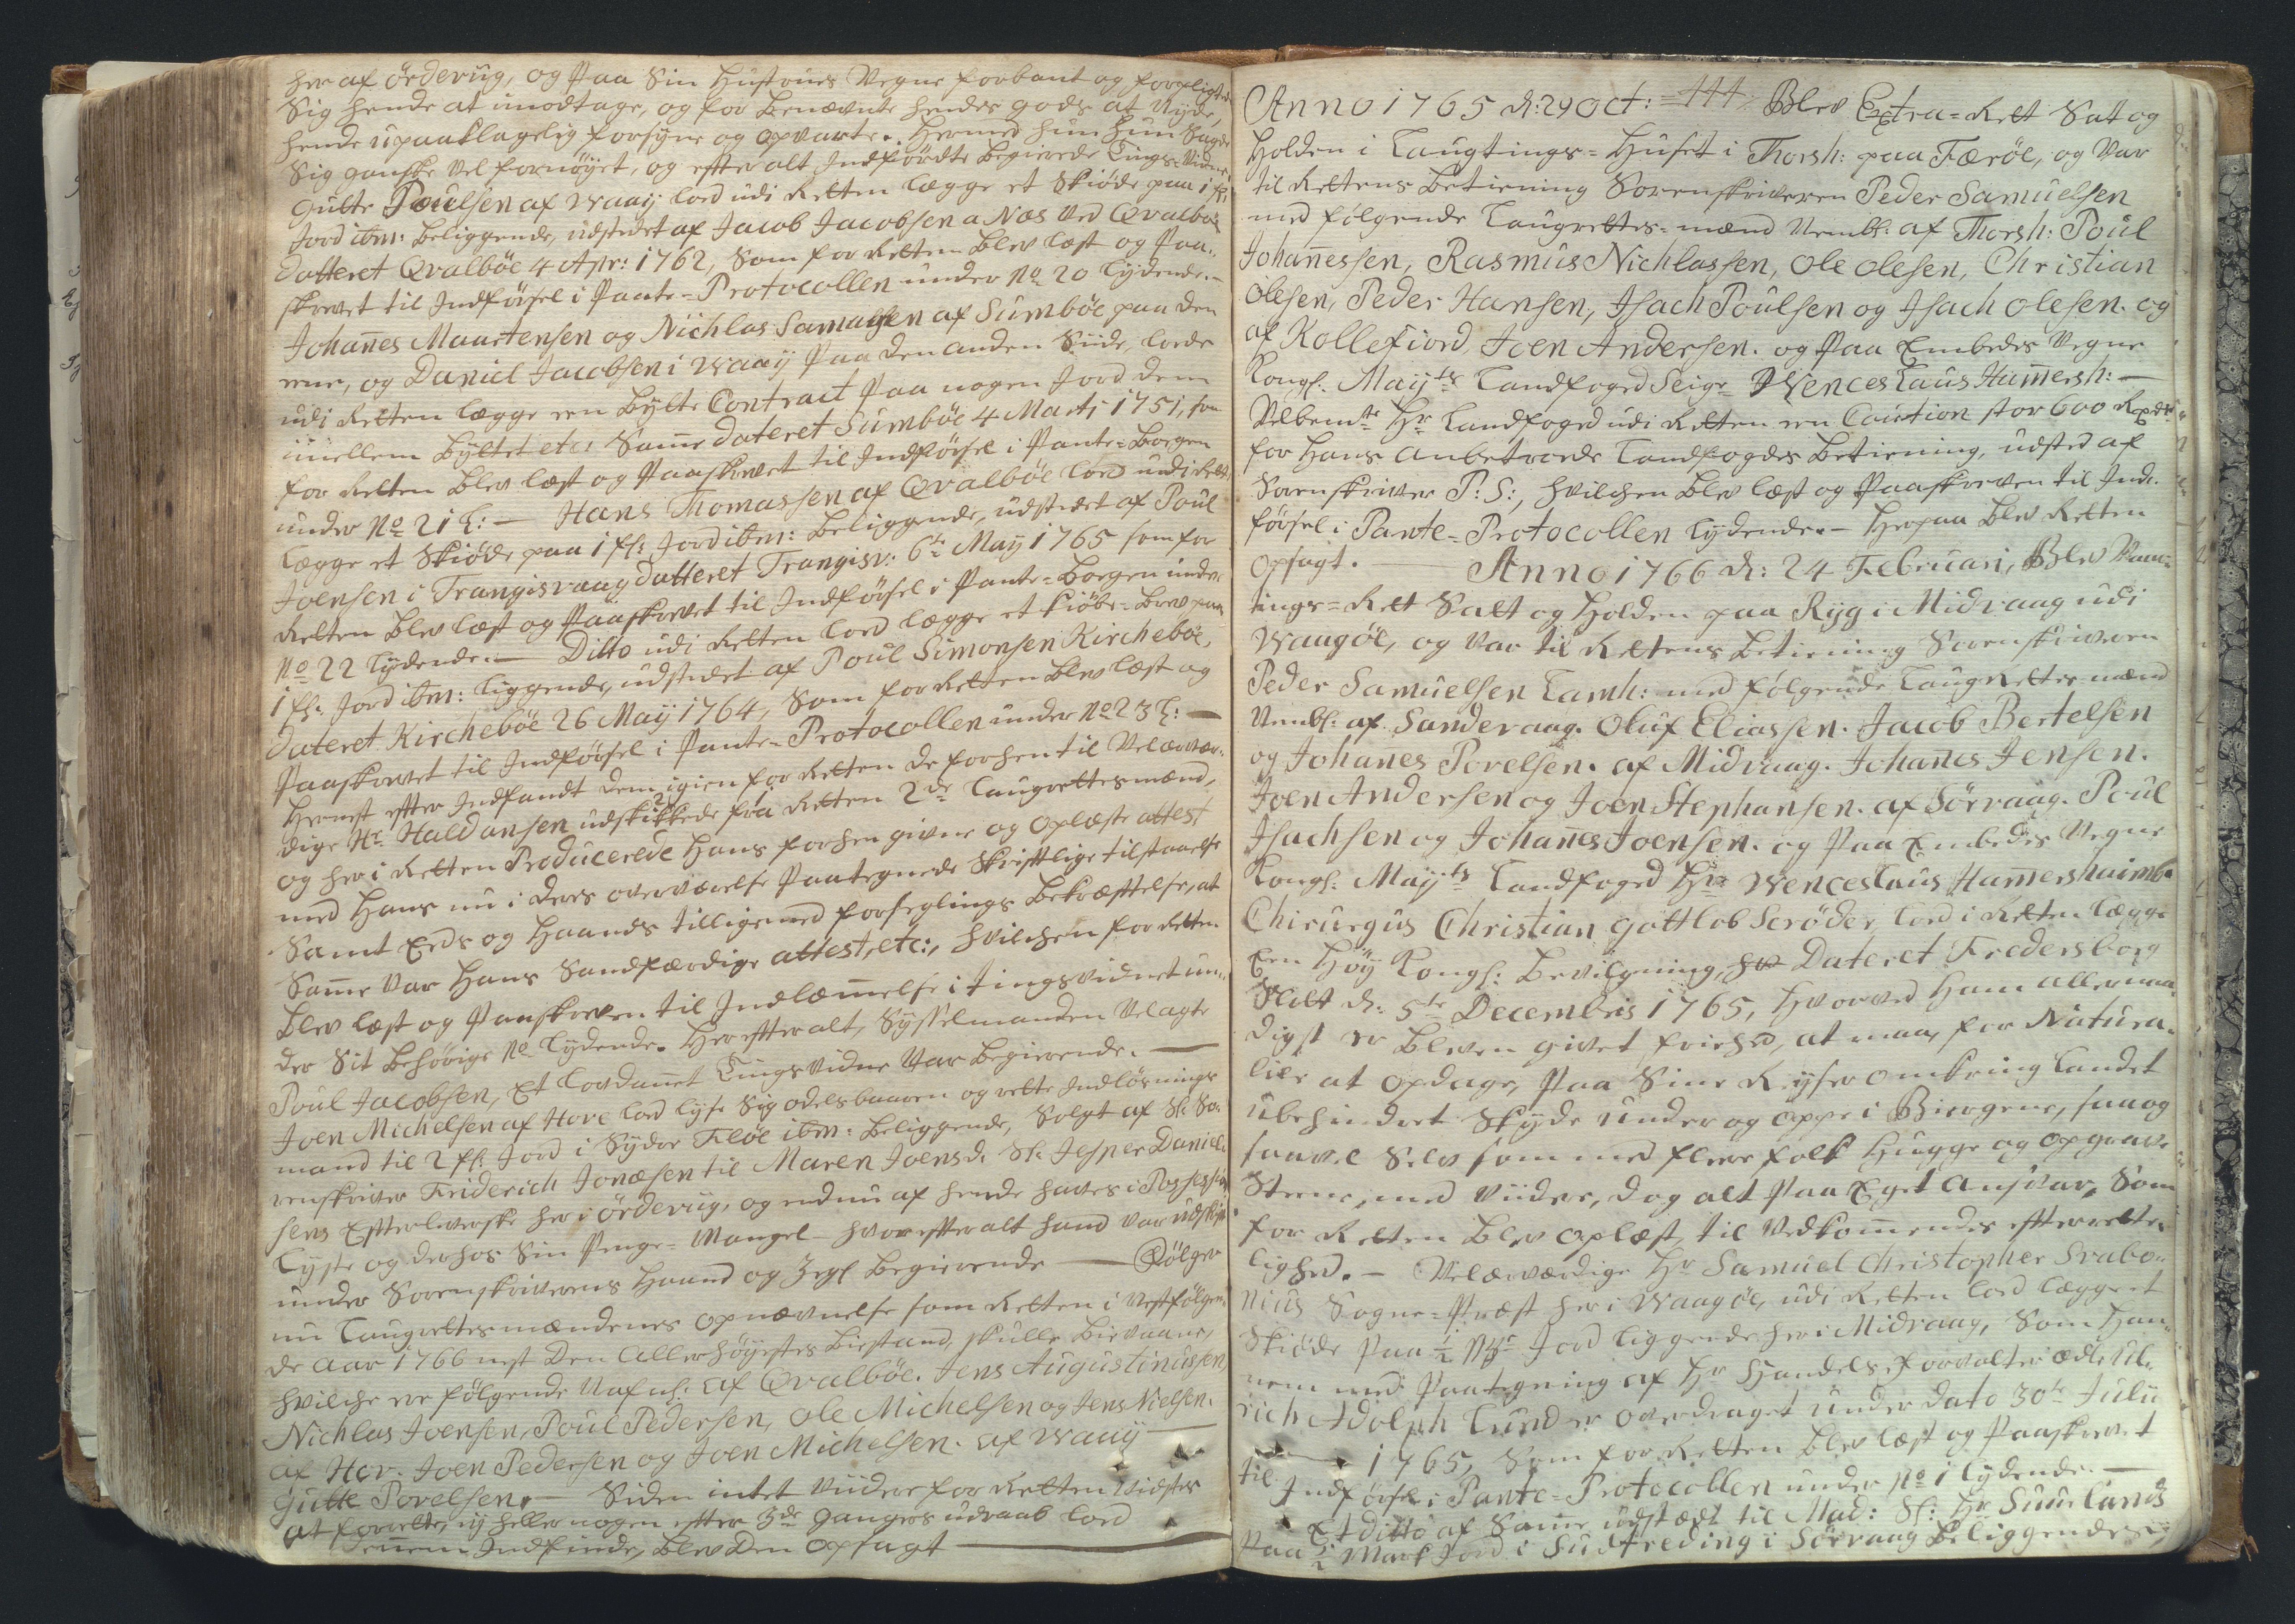 her af ørderviig, og Paa Sin Hustrues Vegne forbant og forpligted
Sig hende at imodtage, og for benævnte hendes gods at Nyde,
hende upaaklagelig forsyne og opvarte. Hermed hun hun Sagde
Sig ganske vel fornøyet, og effter alt Indførdte begierede Tings-Vidne
Gutte Poulsen af Waay lod udi Retten lægge et Skiøde paa 1 fl:
Jord ibm: beliggende, udstedet af Jacob Jacobsen a Næs ved Qvalbøe
datteret Qvalbøe 4 Apr: 1762, Som for Retten blev læst og Paa-
skrevet til Indførsel i Pante-Protocollen under No 20 lydende. –
Johannes Maartensen og Nichlas Samalsen af Sumbøe paa den
eene, og Daniel Jacobsen i Waay Paa den anden Siide, lode
udi Retten lægge een bytte Contract Paa nogen Jord dem
imellem byttet etc: Samme dateret Sumbøe 4 Marti 1751, som
for Retten blev læst og Paaskrevet til Indførsel i Pante-Bogen
under No 21 L: — Hans Thomassen af Qvalbøe lod udi Rett:
lægge et Skiøde paa 1 fl: Jord ibm: beliggende, udstedet af Poul
Joensen i Trangisvaag datteret Trangisv: 6te Maij 1765 som for
Retten blev læst og Paaskrevet til Indførsel i Pante-Bogen under
No 22 lydende. — Ditto udi Retten lod lægge et kiøbe-brev paa
1 fl: Jord ibm: liggende, udstedet af Poul Simonsen Kirchebøe,
dateret Kirchebøe 26 Maij 1764, Som for Retten blev læst og
Paaskrevet til Indførsel i Pante-Protocollen under No 23 L: —
Hernest effter Indfandt dem igien for Retten de forhen til Velærvær-
dige Hr. Haldansen udskikkede fra Retten 2de Laugrettesmænd,
og her i Retten Producerede hans forhen givne og oplæste attest
med hans nu i deres overværelse Paategnede Skrifftlige tilstaaelse
Samt Eeds og Haands tilligemed forseglings bekræfftelse, at
Samme var hans Sandfærdige attest, etc:, hvilchen for Retten
blev læst og Paaskreven til Indlæmmelse i Tingsvidnet un-
der Sit behørige No lydende. Her effter alt, Sysselmanden Velagte
Poul Jacobsen, Et lovdannet Tingsvidne var begierende. —
Joen Michelsen af Hove lod lyse Sig odelsbaaren og rette Indløsnings
mand til 2 fl: Jord i Sydre Fløe ibm: beliggende, Solgt af Sl: So-
renskriver Friderich Jonæsen til Maren Joensd. Sl: Jesper Daniel-
sens Effterleverske her i ørderviig, og endnu af hende haves i Possession
lyste og derhos Sin Penge-Mangel hvor effter alt hand var udskrift
under Sorenskriverens Haand og Zegl begierende — Følger
nu Laugrettesmændenes opnævnelse som Retten i Nestfølgen-
de Aar 1766 nest Den Allerhøyestes biestand, skulle bievaane,
hvilche ere følgende Nafnl: af Qvalbøe. Jens Augustinusen,
Nichlas Joensen, Poul Pedersen, Ole Michelsen og Jens Nielsen.
af Hov. Joen Pedersen og Joen Michelsen. af Waay
Gutte Povelsen. — Siden intet viidere for Retten vidstes
at forrette, ey heller nogen effter 3de ganges udraab lod
enem Indfinde, blev Den opsagt —
Anno 1765 d: 29 Oct: Blev Extra-Rett Sat og
Holden i Laugtings-Huset i Thorsh: paa Færøe, og var
til Rettens betiening Sorenskriveren Peder Samuelsen
med følgende Laugrettes-mænd Nembl: af Thorsh: Poul
Johannessen, Rasmus Nichlassen, Ole Olesen, Christian
Olesen, Peder Hansen, Isach Poulsen og Isach Olesen. og
af Kollefiord Joen Andersen. og Paa Embedes Vegne
Kongl: Mayts Landfoged Seigr Wenceslaus Hammersh: —
Velbemte Hr Landfoged udi Retten een Caution stor 600 Rxdlr
for Hans anbetroede Landfogdes betiening, udsted af
Sorenskriver P: S:, hvilchen blev læst og Paaskreven til Ind-
førsel i Pante-Protocollen lydende. — Herpaa blev Retten
opsagt. Anno 1766 d: 24 Februari, Blev Vaar-
tings-Rett Satt og Holden paa Ryg i Midvaag udi
Waagøe, og var til Rettens betiening Sorenskriveren
Peder Samuelsen Lamh: med følgende LaugRettes mænd
Nembl: af Sandevaag. Oluf Eliassen. Jacob Bertelsen
og Johannes Povelsen. af Midvaag. Johannes Jensen.
Joen Andersen og Joen Stephansen. af Sørvaag. Poul
Isachsen og Johannes Joensen. og Paa Embedes Vegne
Kongl: Mayts Landfoged Hr Wenceslaus Hammershaimb.
Chirurgus Christian Gottlob Scrøder, lod i Retten lægge
Een Høy Kongl: bevilgning, Dateret Fredersborg
Slott d: 5te Decembris 1765, hvorved ham allernaa-
digst er bleven givet friehed, at maa for Natura-
lier at opdage, Paa Sine Reyser omkring Landet
ubehindret Skyde under og oppe i Biergene, saa og
saavel Selv som med flere folk hugge og opgrave
Steene, med viidere, dog alt Paa Eget ansvar, Som
for Retten blev oplæst, til vedkommendes effterrette-
lighed. — Velærværdige Hr Samuel Christopher Svabo-
nius Sogne-Præst her i Waagøe, udi Retten lod lægge et
Skiøde Paa ½ Mk Jord liggende her i Midvaag, Som han-
nem med Paategning af Hr Handels forvalter ædle Ul-
rich Adolph Lund er overdraget under dato 30te Julij
1765, Som for Retten blev læst og Paaskrevet
til Indførsel i Pante-Protocollen under No 1 lydende. —
Et ditto af Samme udstædt til Mad: Sl: Hr Suurlands
Paa ½ Mark Jord i Sudtreding i Sørvaag beliggendes,